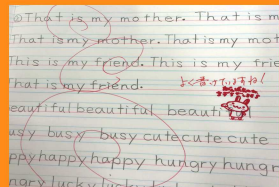 That is my mother. That is m
That is my mother. That is my mot
This is my friend. This is my frie
That is my friend.
よく書けていますね!
eautiful beautiful beauti
usy busy busy cute cute cute
ppy happy happy hungry hungr
ngry lucky lucky